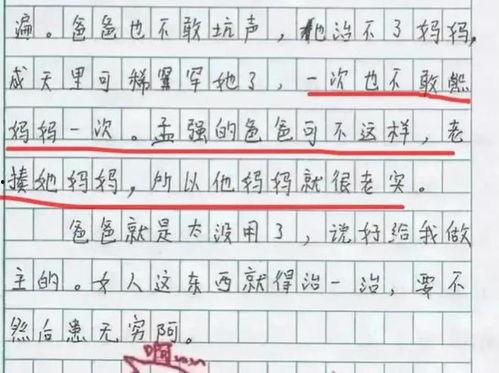 遍。爸爸也不敢坑声，他治不了妈妈，
成天里可稀罕她了，一次也不敢
妈妈一次。孟强的爸爸可不这样，老
揍她妈妈，所以他妈妈就很老实。
爸爸就是太没用了，说好给我做
主的。女人这东西就得治一治，要不
然后患无穷阿。
啊